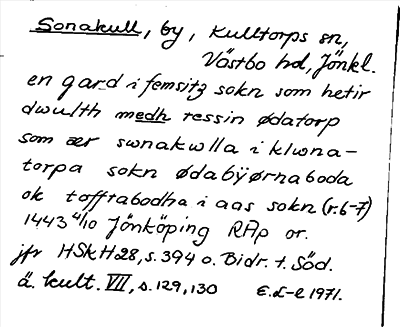 Sonakull, by, Kulltorps sn,
Västbo hd, Jönkl.
en gard i femsitz sokn som hetir
dwulth medh ressin ødatorp
som ær swnakwlla i klwna-
torpa sokn ødabÿørnaboda
ok toffrabodha i aas sokn (r.6-7)
1443 4/10 Jönköping RAp or.
jfr HSkH28, s. 394 o. Bidr. t. Söd.
ä. kult. VII, s. 129, 130 E.L-e 1971.